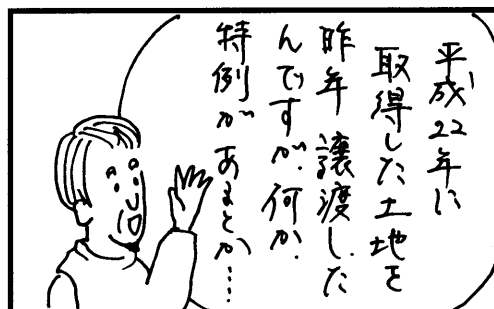 平成22年に
取得した土地を
昨年譲渡した
んですが、何か
特例があるとか…